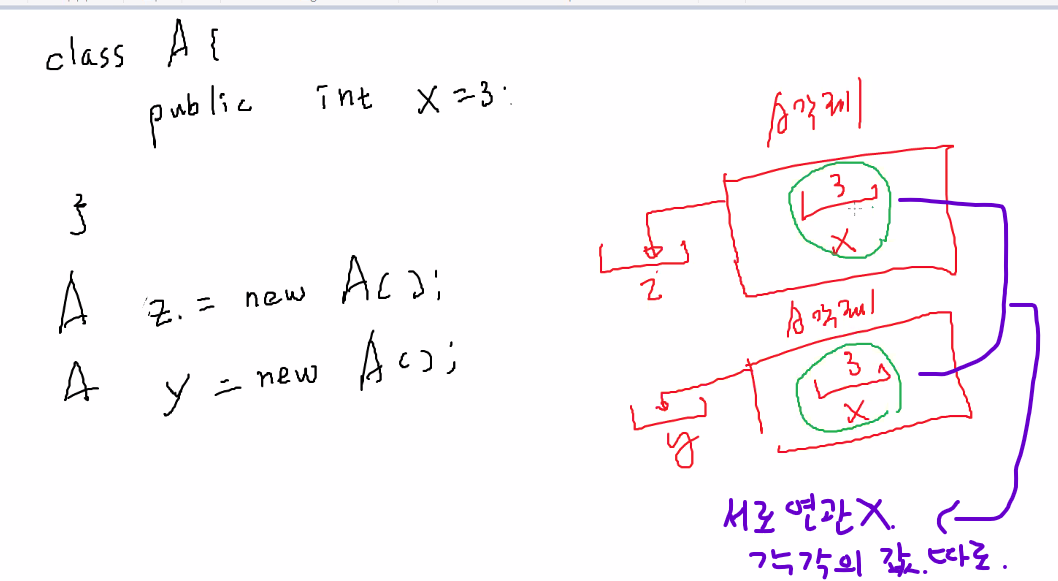 class A {
public int x = 3;
}
A z = new A();
A y = new A();
A객체
3
x
z
A객체
3
x
y
서로 연관 X.
각각의 값. 따로.